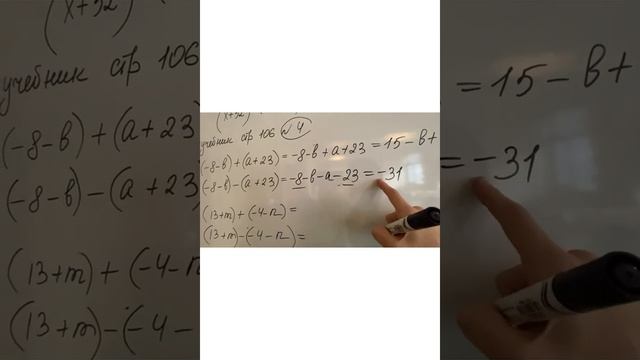 (x+32)
учебник стр 106 №4
(-8-в)+(а+23)=-8-в+а+23=15-в+
(-8-в)-(а+23)=-8-в-а-23=-31
(13+m)+(-4-n)=
(13+m)-(-4-n)=